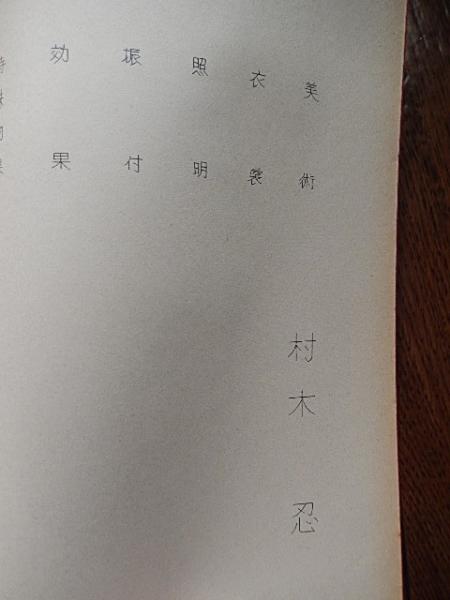 美術 村木 忍
衣裳
照明
振付
効果